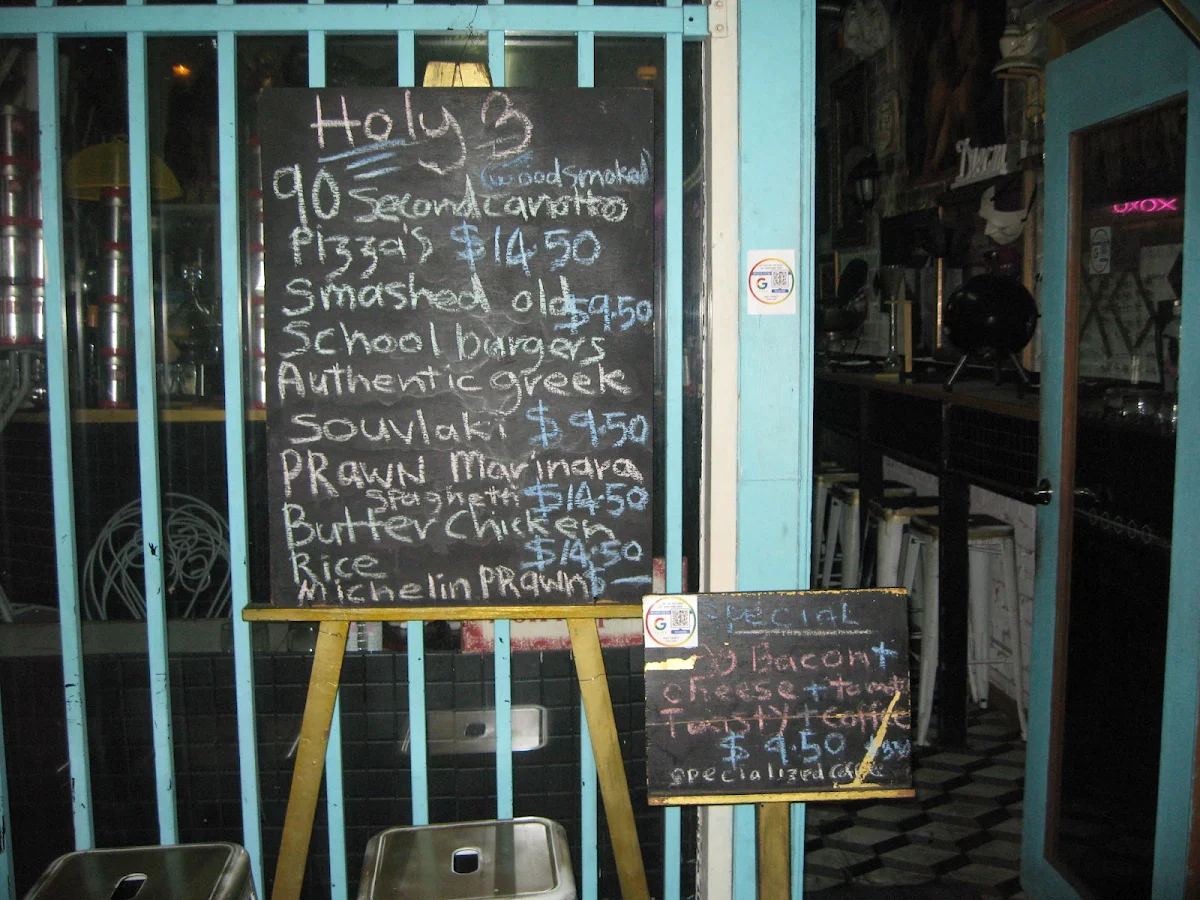 Holy
(woodsmoked)
90 Second canotto
Pizza's $14.50
Smashed old $9.50
School burgers
Authentic greek
Souvlaki $9.50
PRAWN Marinara
Spaghetti $14.50
Butter Chicken
Rice $14.50
Michelin PRAWN $ —
Special
Bacon +
cheese + tomato
Toasty + Coffee
$9.50
specialized Coffee
G
G
XOXO